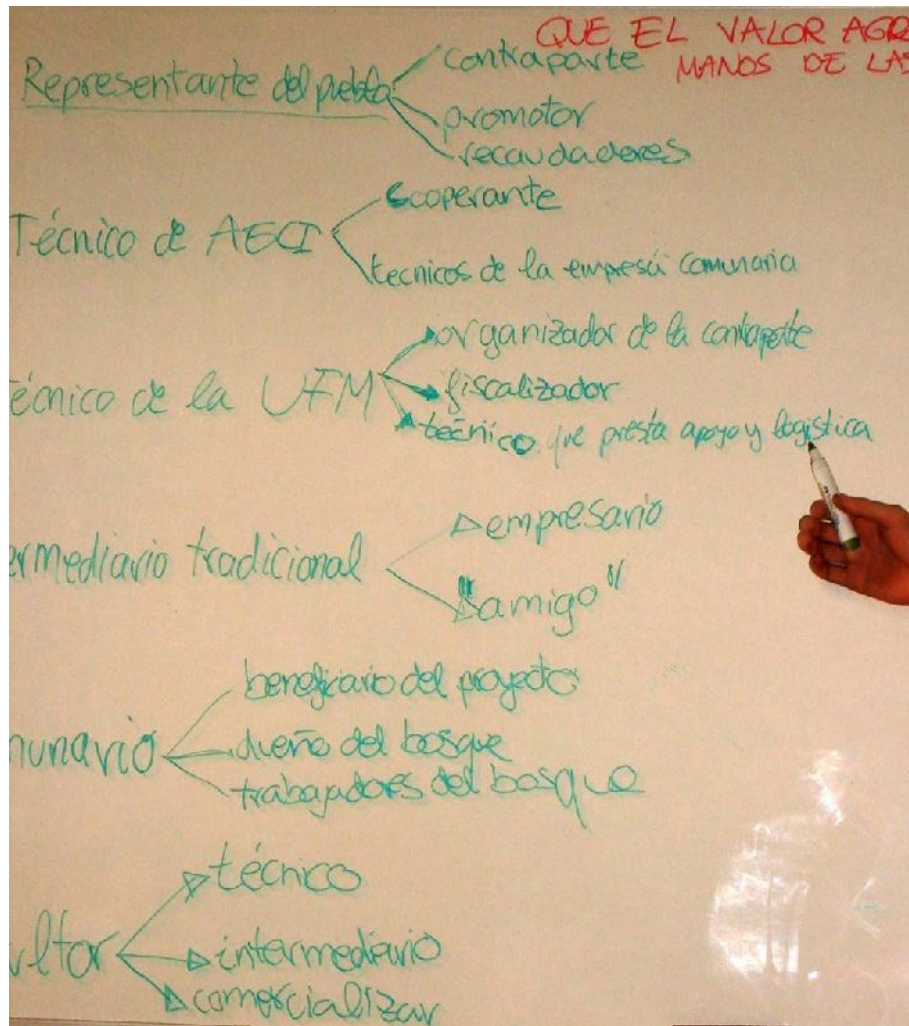 QUE EL VALOR AGR
MANOS DE LAS
Representante del pueblo
contraparte
promotor
recaudadores
Técnico de AECI
Cooperante
tecnicos de la empresa comunaria
écnico de la UFM
organizador de la contraparte
fiscalizador
técnico que presta apoyo y logistica
ermediario tradicional
empresario
"amigo"
munario
beneficiario del proyecto
dueño del bosque
trabajadores del bosque
ultor
técnico
intermediario
comercializar